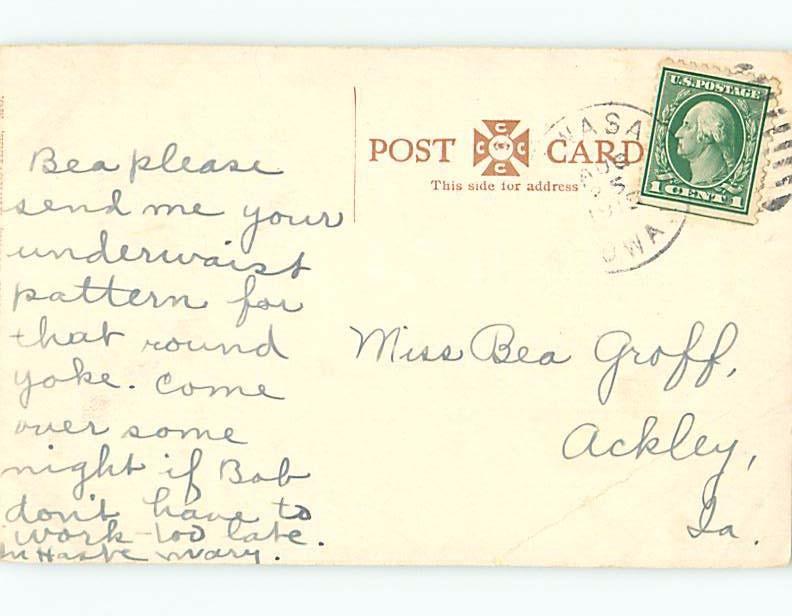 Bea please
send me your
underwaist
pattern for
that round
yoke. Come
over some
night if Bob
don't have to
work too late.
In Haste Mary.
POST CARD
This side for address
U.S. POSTAGE
1 CENT 1
WASA
AUG
5
OWA
Miss Bea Groff,
Ackley,
Ia.